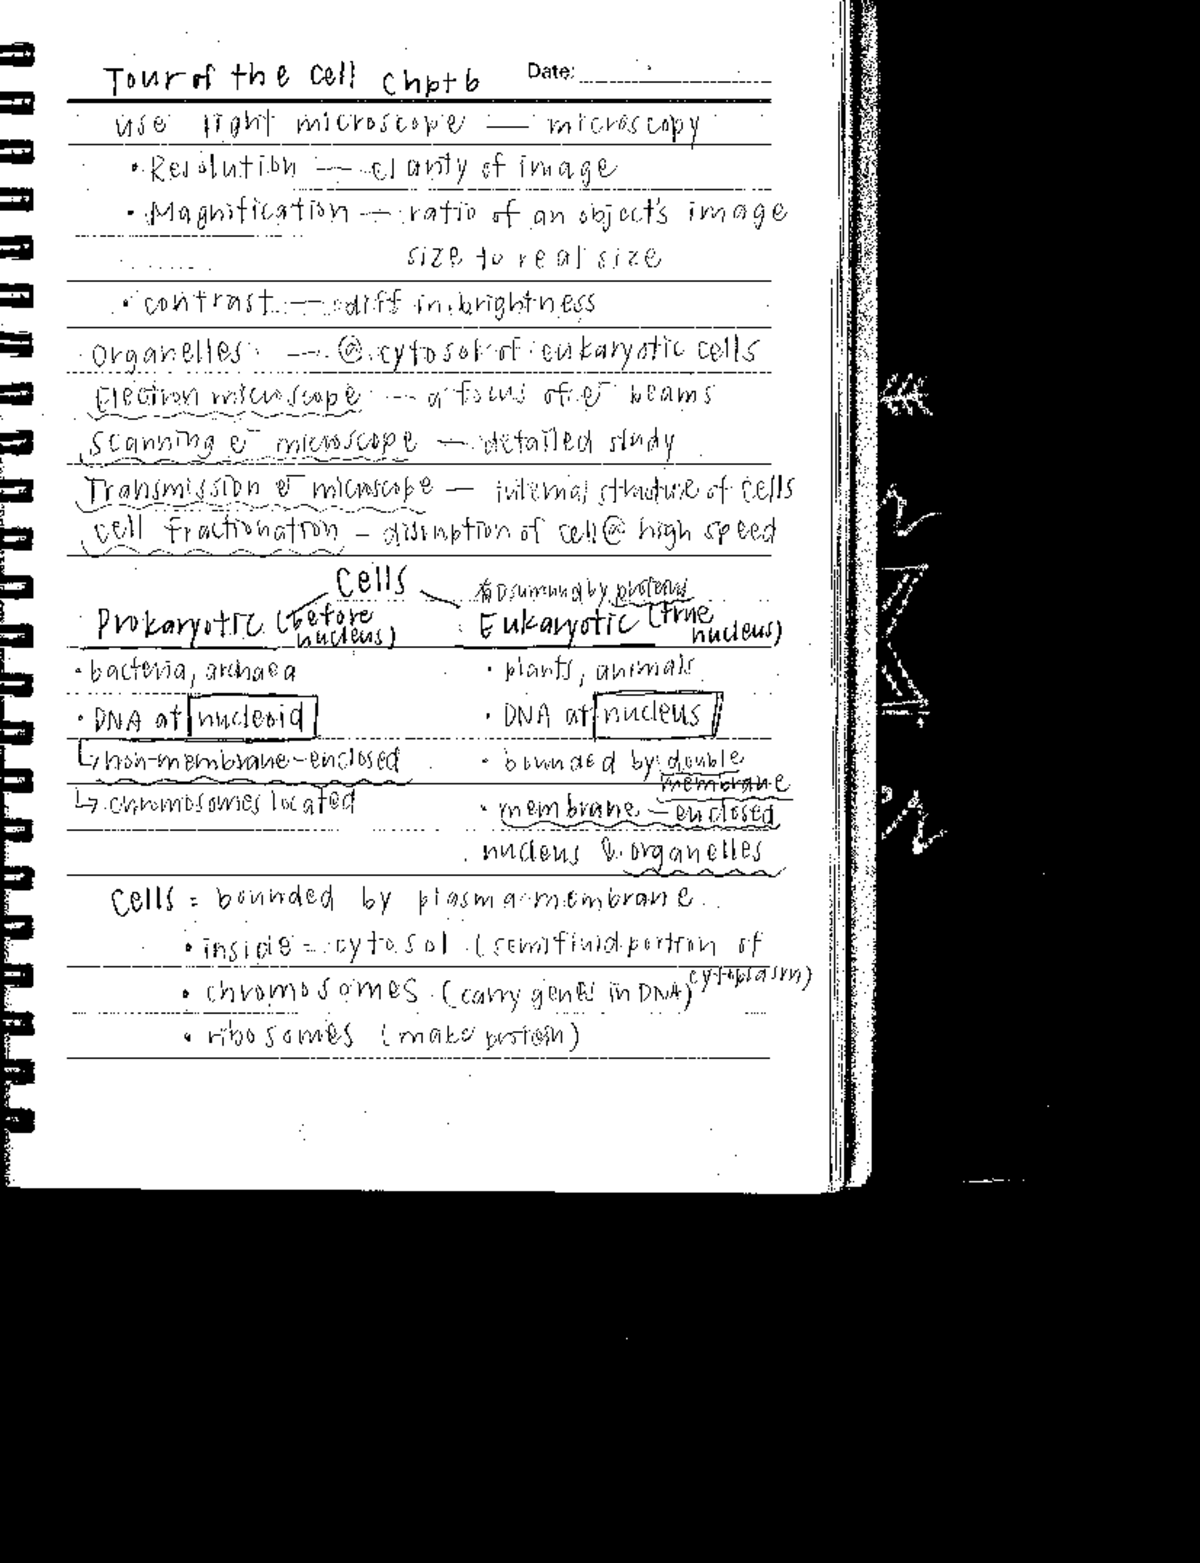 Tour of the cell Chpt 6 Date:
use light microscope — microscopy
• Resolution — clarity of image
• Magnification — ratio of an object's image
size to real size
• contrast — diff in brightness
Organelles — @ cytosol of eukaryotic cells
Electron microscope — a focus of e⁻ beams
Scanning e⁻ microscope — detailed study
Transmission e⁻ microscope — internal structure of cells
cell fractionation – disruption of cell @ high speed
Cells
by proteins
Prokaryotic (before nucleus)
Eukaryotic (true nucleus)
• bacteria, archaea
• plants, animals
• DNA at nucleoid
• DNA at nucleus
↳ non-membrane-enclosed
• bounded by double membrane
↳ chromosomes located
• membrane – enclosed
nucleus & organelles
Cells = bounded by plasma membrane
• inside = cytosol (semifluid portion of cytoplasm)
• chromosomes (carry genes in DNA)
• ribosomes (make protein)